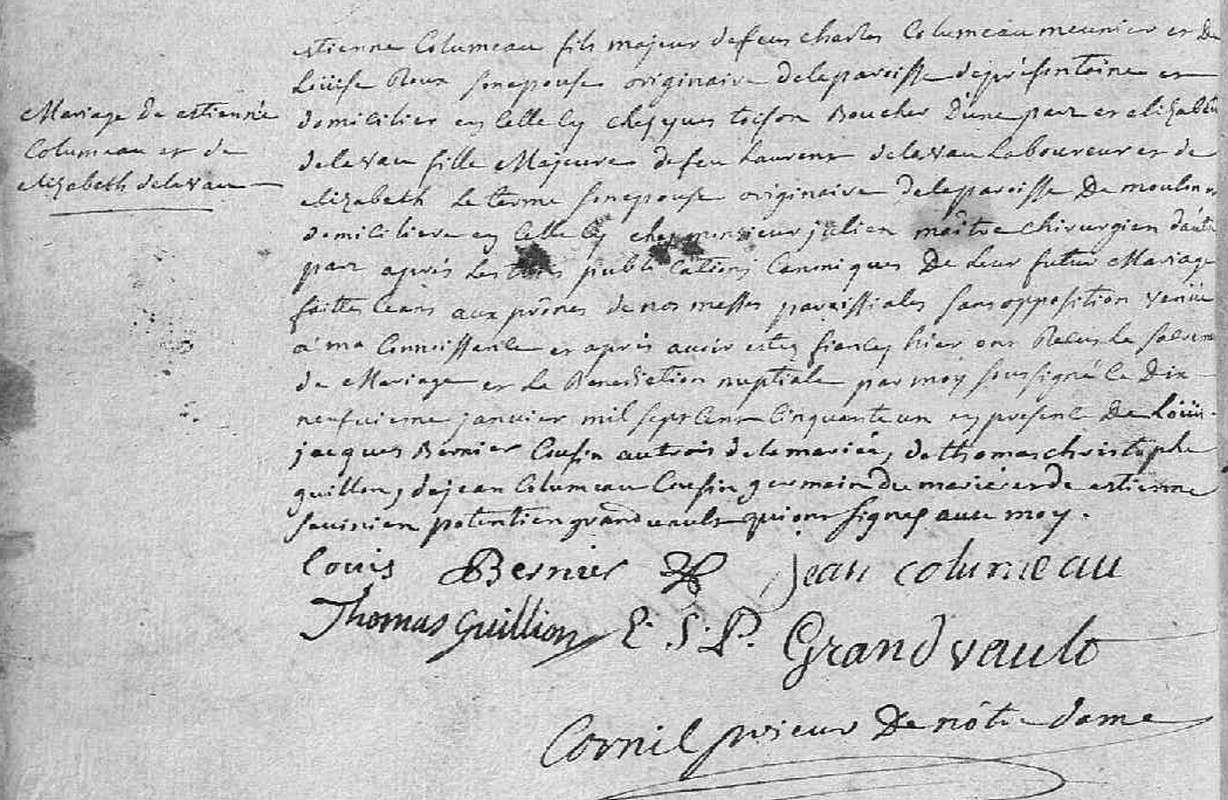 Mariage de estienne
Columeau et de
elizabeth delavau
estienne Columeau fils majeur defeu charles Columeau meunier et De
Loüise Roux sonepouse originaire delaparoisse depréfontaine et
domicilier en celle cy chez yves toison Boucher D'une part et elizabeth
delavau fille Majeure defeu Laurent delavau Laboureur et de
elizabeth Le terme sonepouse originaire delaparoisse De moulon
domiciliere en Celle Cy chez monsieur julien maître chirurgien d'autre
part aprés Les bans publications Canoniques De Leur futur Mariage
faittes Ceans aux prônes de nos messes paroissiales sans opposition venüe
a' ma Connoissance et aprés avoir estez fiancez hier ont Recus Le sacrem
de Mariage et La Benediction nuptiale par moy soussigné Le Dix
neufvieme janvier mil sept Cent Cinquante un en presence De Loüis
jacques Bernier Cousin au trois de la mariée, de thomas christophe
guillon, de jean Columeau Cousin germain du marié et de estienne
savinien potentien grandvault qui ont signez avec moy.
Louis Bernier jean columeau
Thomas Guillion E. S. P. Grandvault
Cornil prieur De nôtre dame